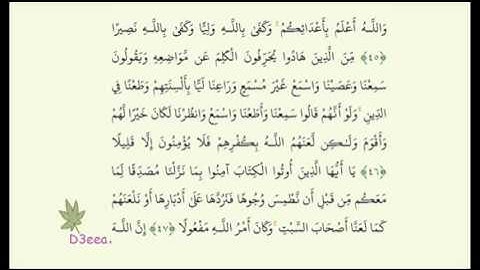 وَاللَّهُ أَعْلَمُ بِأَعْدَائِكُمْ ۚ وَكَفَىٰ بِاللَّهِ وَلِيًّا وَكَفَىٰ بِاللَّهِ نَصِيرًا
﴿٤٥﴾ مِّنَ الَّذِينَ هَادُوا يُحَرِّفُونَ الْكَلِمَ عَن مَّوَاضِعِهِ وَيَقُولُونَ
سَمِعْنَا وَعَصَيْنَا وَاسْمَعْ غَيْرَ مُسْمَعٍ وَرَاعِنَا لَيًّا بِأَلْسِنَتِهِمْ وَطَعْنًا فِي
الدِّينِ ۚ وَلَوْ أَنَّهُمْ قَالُوا سَمِعْنَا وَأَطَعْنَا وَاسْمَعْ وَانظُرْنَا لَكَانَ خَيْرًا لَّهُمْ
وَأَقْوَمَ وَلَٰكِن لَّعَنَهُمُ اللَّهُ بِكُفْرِهِمْ فَلَا يُؤْمِنُونَ إِلَّا قَلِيلًا
﴿٤٦﴾ يَا أَيُّهَا الَّذِينَ أُوتُوا الْكِتَابَ آمِنُوا بِمَا نَزَّلْنَا مُصَدِّقًا لِّمَا
مَعَكُم مِّن قَبْلِ أَن نَّطْمِسَ وُجُوهًا فَنَرُدَّهَا عَلَىٰ أَدْبَارِهَا أَوْ نَلْعَنَهُمْ
كَمَا لَعَنَّا أَصْحَابَ السَّبْتِ ۚ وَكَانَ أَمْرُ اللَّهِ مَفْعُولًا ﴿٤٧﴾ إِنَّ اللَّهَ
D3eea.